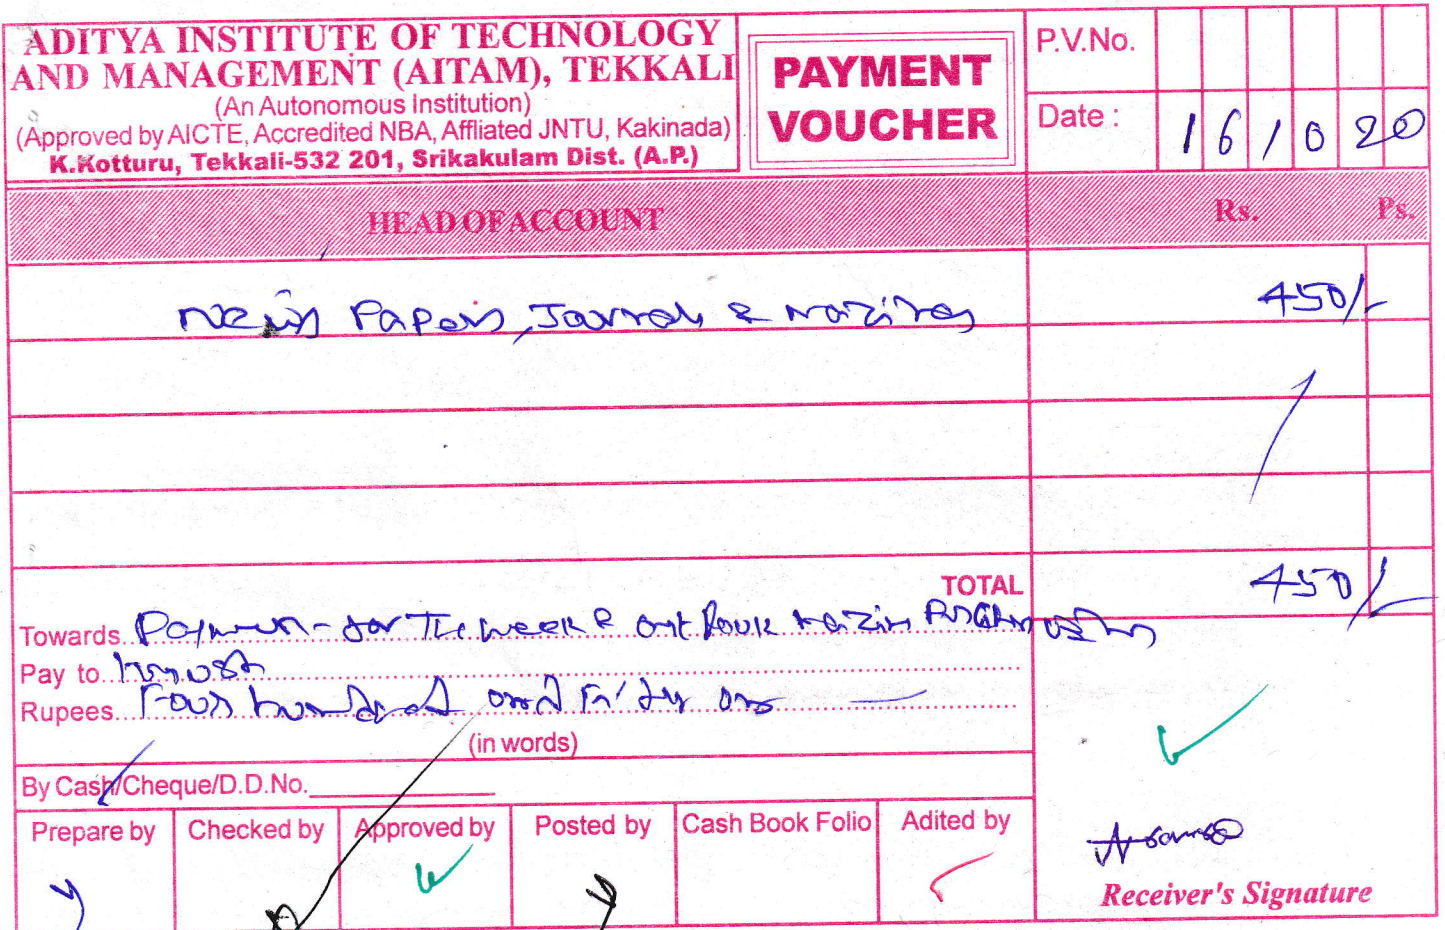 ADITYA INSTITUTE OF TECHNOLOGY
AND MANAGEMENT (AITAM), TEKKALI
(An Autonomous Institution)
(Approved by AICTE, Accredited NBA, Affliated JNTU, Kakinada)
K.Kotturu, Tekkali-532 201, Srikakulam Dist. (A.P.)
PAYMENT
VOUCHER
P.V.No.
Date : 16/020
HEAD OF ACCOUNT Rs. Ps.
News Papers, & 450/-
TOTAL 450/-
Towards for The week &
Pay to
Rupees Four hundred and Fifty
(in words)
By Cash/Cheque/D.D.No.
Prepare by Checked by Approved by Posted by Cash Book Folio Adited by
Receiver's Signature